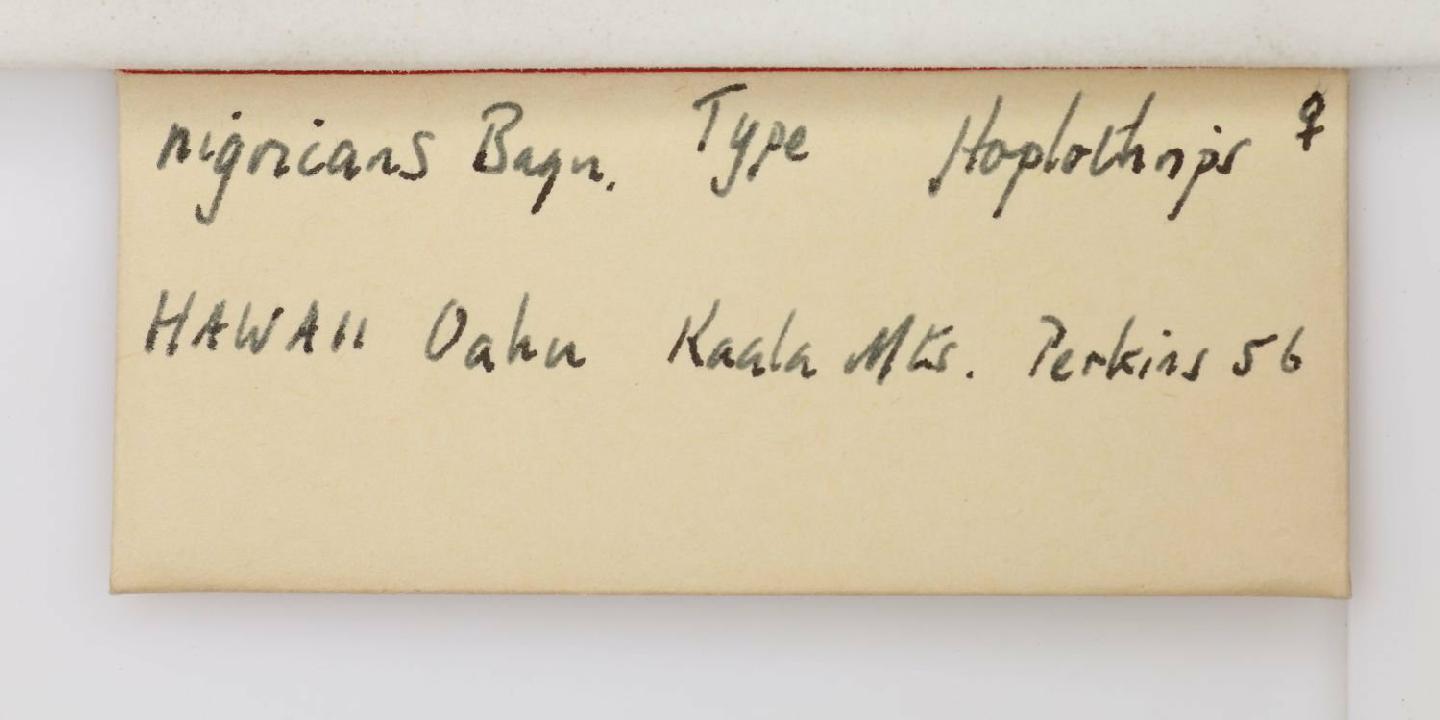 nigricans Bagn. Type Hoplothrips ♀
HAWAII Oahu Kaala Mts. Perkins 56